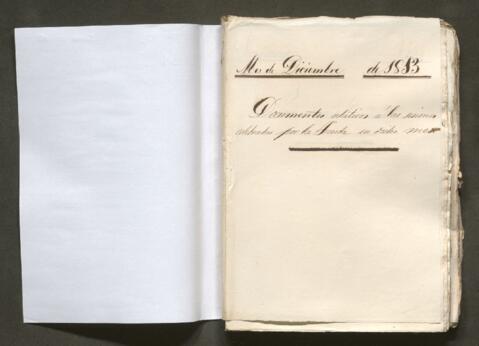 Mes de Diciembre de 1853
Documentos relativos á las sesiones
celebradas por la Junta en dicho mes